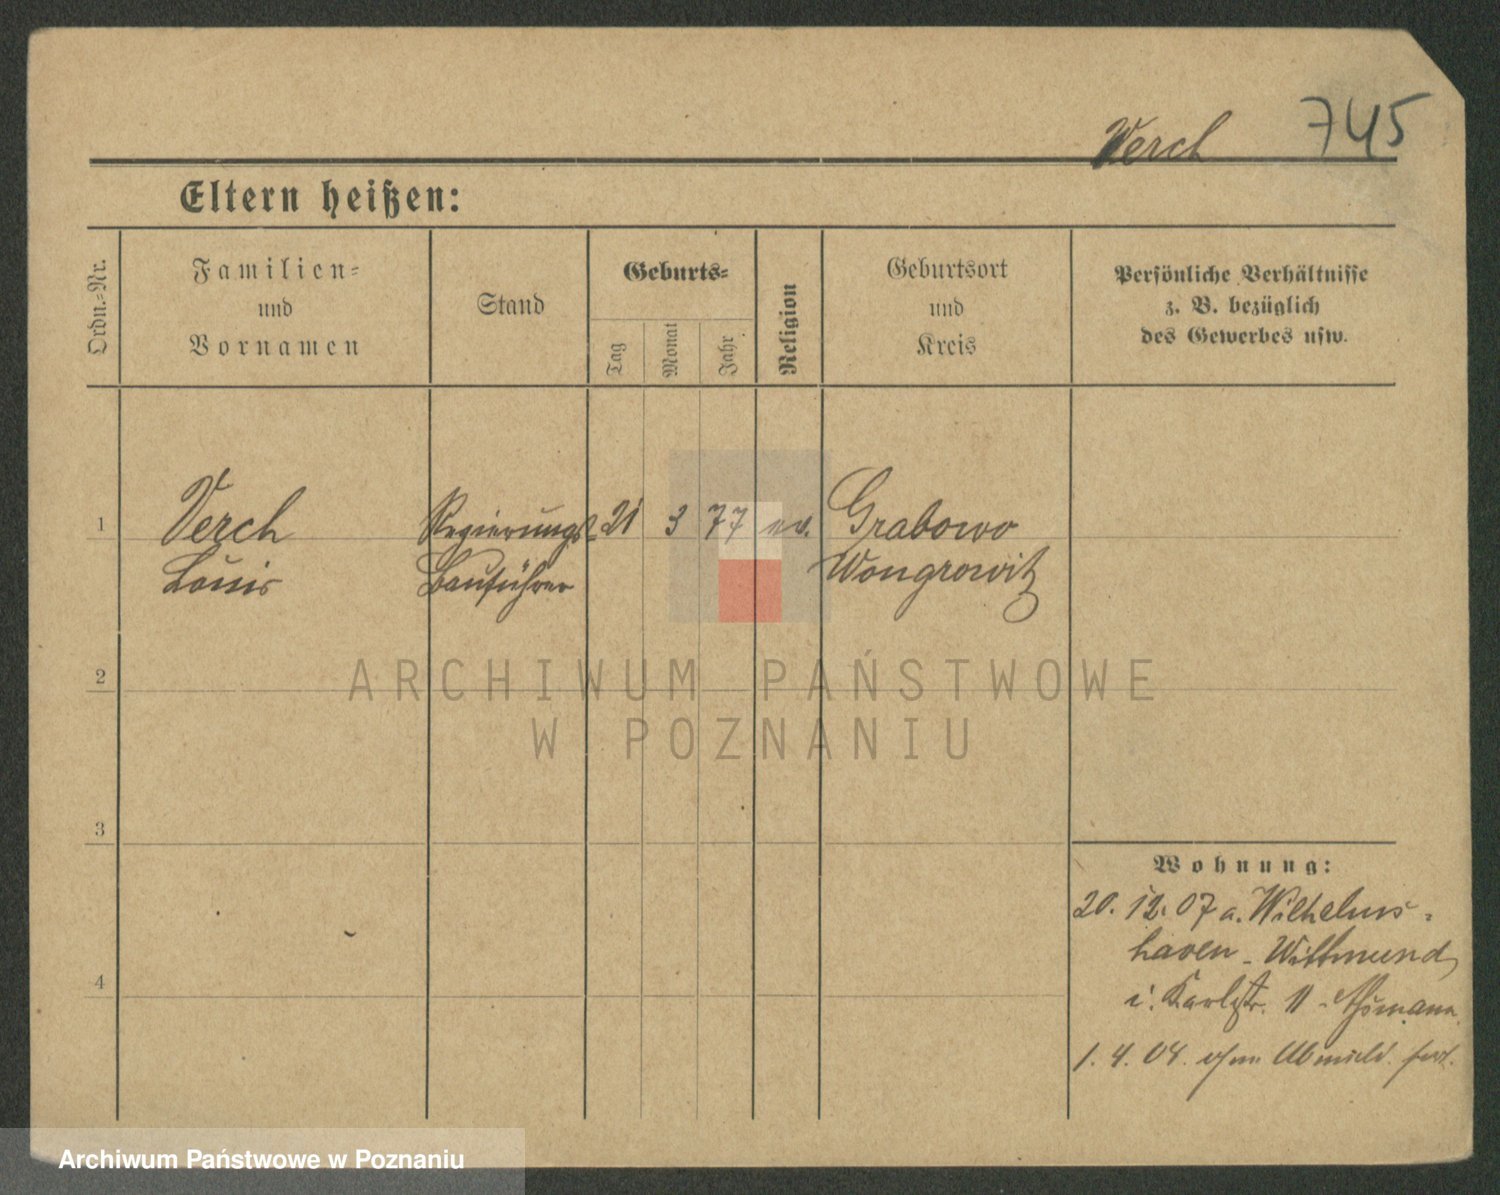 Verch 745
Eltern heißen:
Ordn.-Nr.
Familien-
und
Vornamen
Stand
Geburts-
Tag
Monat
Jahr
Religion
Geburtsort
und
Kreis
Persönliche Verhältnisse
z. B. bezüglich
des Gewerbes usw.
1 Verch Regierungs- 21 3 77 ev. Grabowo
Louis Bauführer Wongrowitz
2
3
4
Wohnung:
20. 12. 07 a. Wilhelms-
haven - Wittmund
i. Karlstr. 11
1. 4. 08. ohne Abmeld. fort.
ARCHIWUM PAŃSTWOWE
W POZNANIU
Archiwum Państwowe w Poznaniu